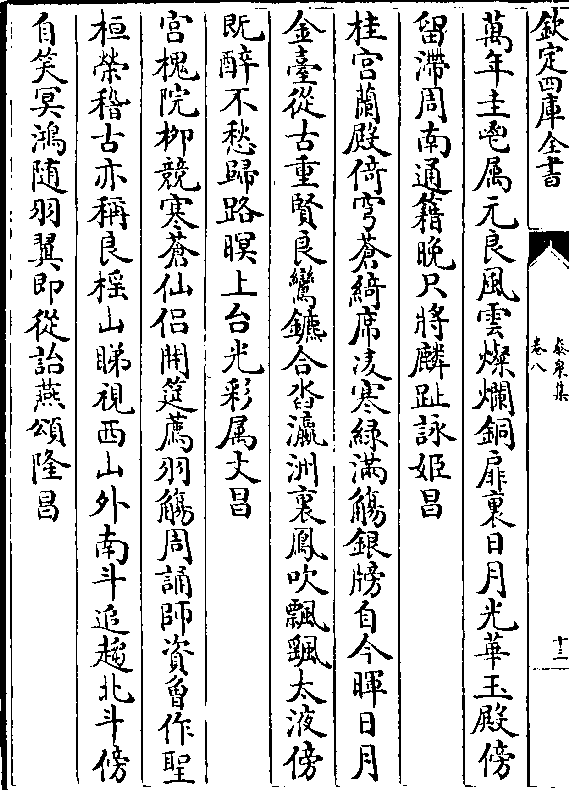 欽定四庫全書
泰泉集
卷八
十三
萬年圭鬯属元良風雲燦爛銅扉裏日月光華玉殿傍
留滯周南通籍晚只將麟趾詠姬昌
桂宫蘭殿倚穹蒼綺席凌寒緑滿觴銀牓自今暉日月
金臺從古重賢良鸞鑣合沓瀛洲裏鳳吹飄颻太液傍
既醉不愁歸路暝上台光彩属文昌
宫槐院栁競寒蒼仙侣開筵薦羽觴周誦師資曾作聖
桓榮稽古亦稱良榣山睇視西山外南斗追趨北斗傍
自笑冥鴻随羽翼即從詒燕頌隆昌